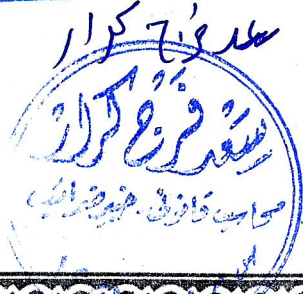 سعد فرج كرار
سعد فرج كرار
محاسب قانونى - خبير ضرائب